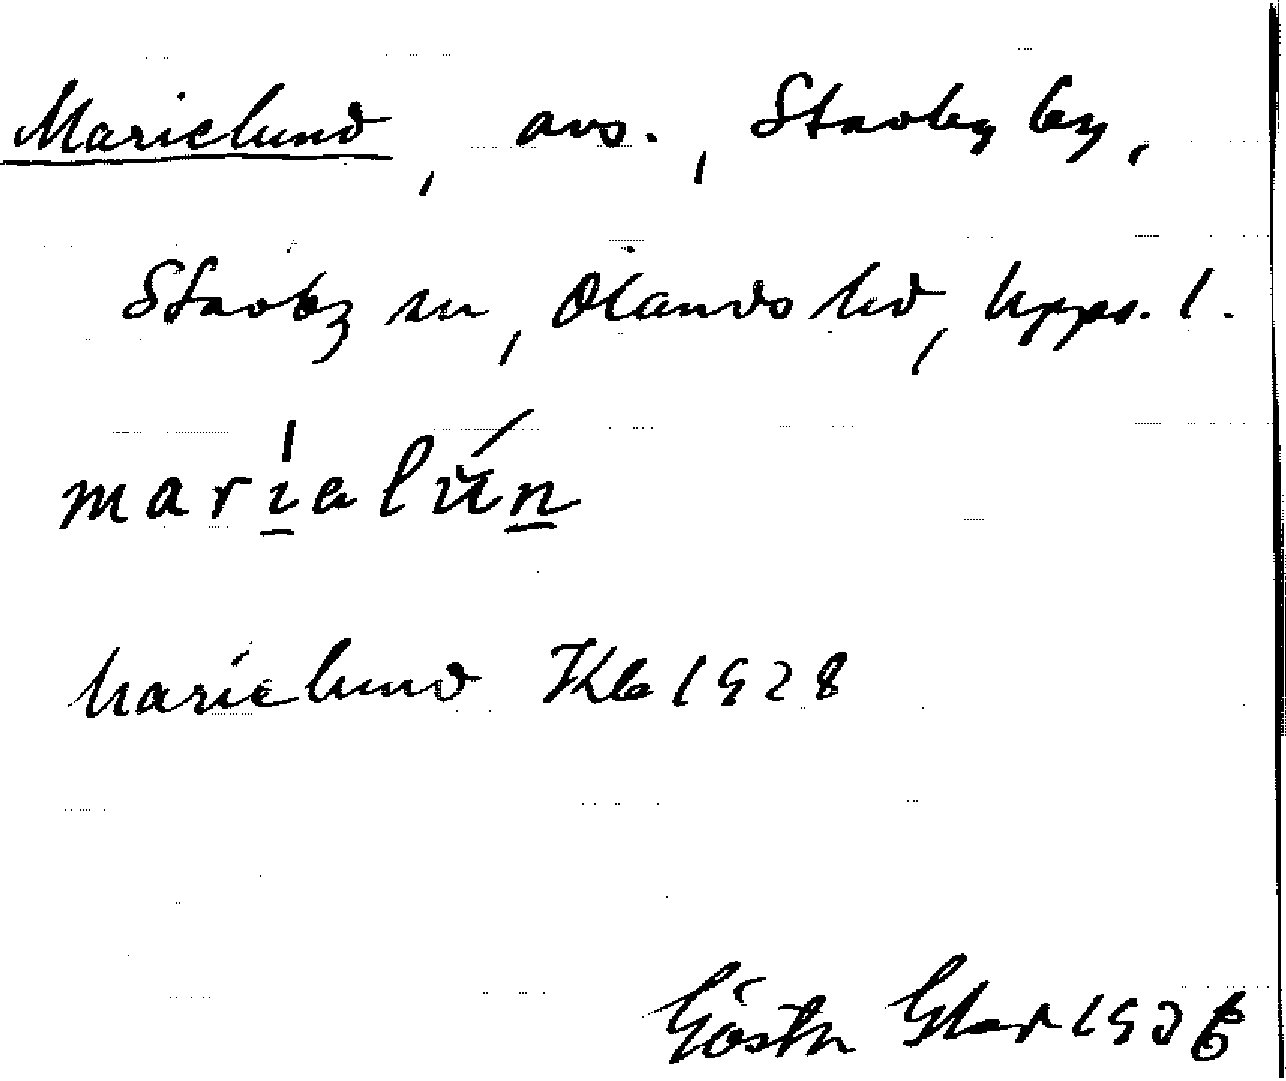 Marielund, avs., Stavby by,
Stavby sn, Olands hd, Upps. l.
marialún
Marielund Kb 1928
Gösta